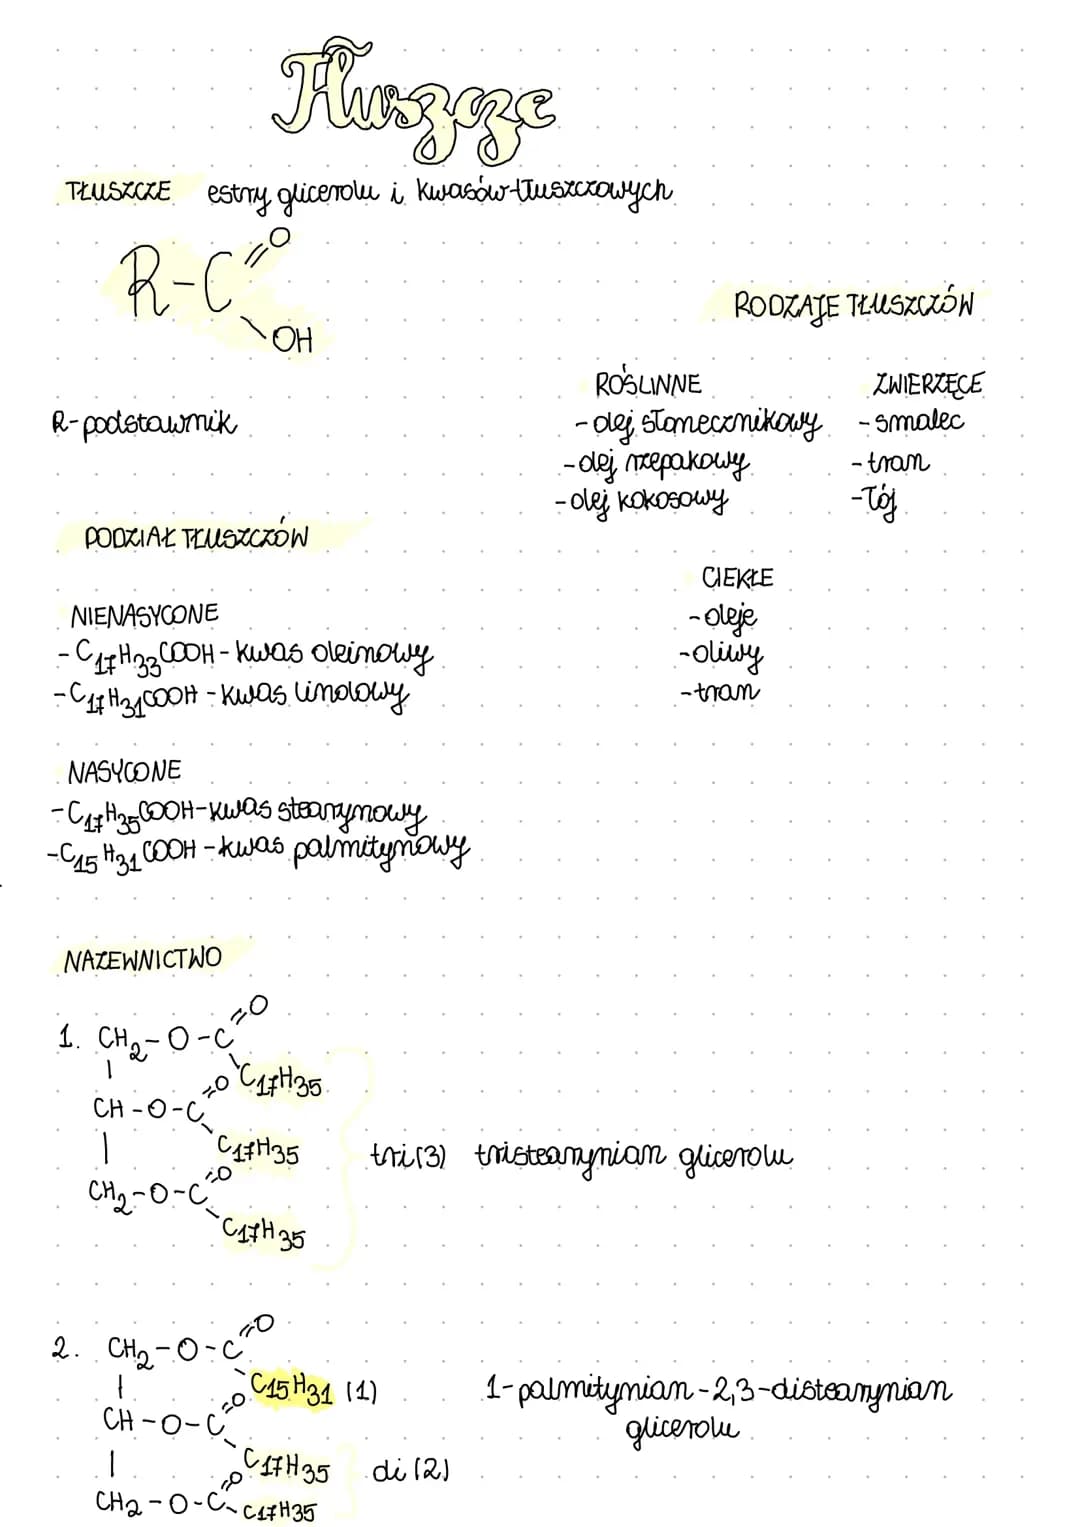 Tłuszcze
TŁUSZCZE estry glicerolu i kwasów tłuszczowych
R-C
=O
\OH
R-podstawnik
RODZAJE TŁUSZCZÓW
ROŚLINNE
-olej słonecznikowy
-olej rzepakowy
-olej kokosowy
ZWIERZĘCE
-smalec
-tran
-łój
CIEKŁE
-oleje
-oliwy
-tran
PODZIAŁ TŁUSZCZÓW
NIENASYCONE
-C₁₇H₃₃COOH-kwas oleinowy
-C₁₇H₃₁COOH-kwas linolowy
NASYCONE
-C₁₇H₃₅COOH-kwas stearynowy
-C₁₅H₃₁COOH-kwas palmitynowy
NAZEWNICTWO
1. CH₂-O-C=O
C₁₇H₃₅
CH-O-C=O
C₁₇H₃₅
CH₂-O-C=O
C₁₇H₃₅
tri(3) tristearynian glicerolu
2. CH₂-O-C=O
C₁₅H₃₁ (1)
CH-O-C=O
C₁₇H₃₅
CH₂-O-C=O
C₁₇H₃₅
di(2)
1-palmitynian-2,3-distearynian
glicerolu